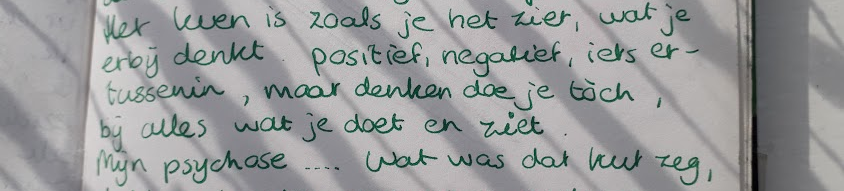 Het leven is zoals je het ziet, wat je
erbij denkt. positief, negatief, iets er-
tussenin, maar denken doe je tòch,
bij alles wat je doet en ziet.
Mijn psychose .... Wat was dat kut zeg,